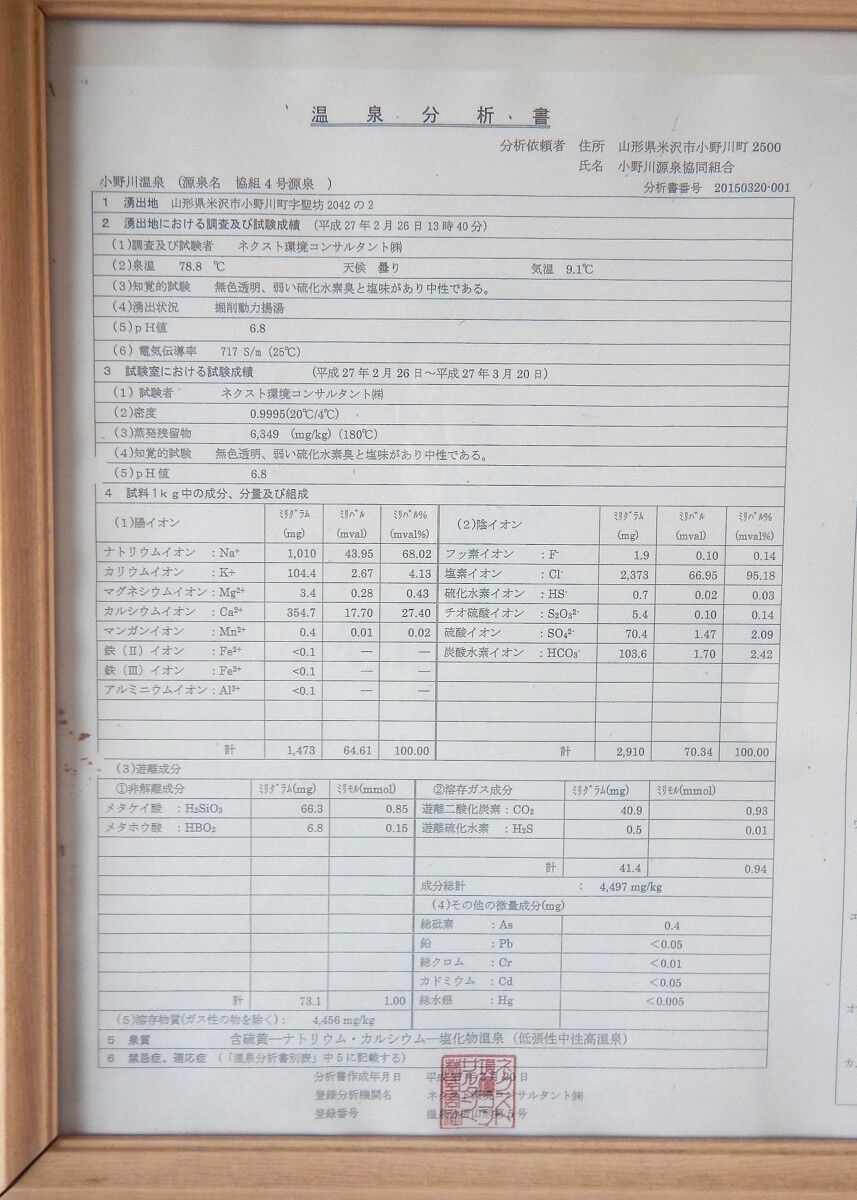 温泉分析書
分析依頼者 住所 山形県米沢市小野川町2500
氏名 小野川源泉協同組合
小野川温泉 (源泉名 協組4号源泉 )
分析書番号 20150320-001
1 湧出地 山形県米沢市小野川町字聖坊2042の2
2 湧出地における調査及び試験成績 (平成27年2月26日13時40分)
(1)調査及び試験者 ネクスト環境コンサルタント㈱
(2)泉温 78.8 ℃ 天候 曇り 気温 9.1℃
(3)知覚的試験 無色透明、弱い硫化水素臭と塩味があり中性である。
(4)湧出状況 掘削動力揚湯
(5)pH値 6.8
(6)電気伝導率 717 S/m (25℃)
3 試験室における試験成績 (平成27年2月26日～平成27年3月20日)
(1)試験者 ネクスト環境コンサルタント㈱
(2)密度 0.9995(20℃/4℃)
(3)蒸発残留物 6,349 (mg/kg) (180℃)
(4)知覚的試験 無色透明、弱い硫化水素臭と塩味があり中性である。
(5)pH値 6.8
4 試料1kg中の成分、分量及び組成
(1)陽イオン ﾐﾘｸﾞﾗﾑ (mg) ﾐﾘﾊﾞﾙ (mval) ﾐﾘﾊﾞﾙ% (mval%) (2)陰イオン ﾐﾘｸﾞﾗﾑ (mg) ﾐﾘﾊﾞﾙ (mval) ﾐﾘﾊﾞﾙ% (mval%)
ナトリウムイオン :Na⁺ 1,010 43.95 68.02 フッ素イオン :F⁻ 1.9 0.10 0.14
カリウムイオン :K+ 104.4 2.67 4.13 塩素イオン :Cl⁻ 2,373 66.95 95.18
マグネシウムイオン:Mg²⁺ 3.4 0.28 0.43 硫化水素イオン :HS⁻ 0.7 0.02 0.03
カルシウムイオン :Ca²⁺ 354.7 17.70 27.40 チオ硫酸イオン :S₂O₃²⁻ 5.4 0.10 0.14
マンガンイオン :Mn²⁺ 0.4 0.01 0.02 硫酸イオン :SO₄²⁻ 70.4 1.47 2.09
鉄(Ⅱ)イオン :Fe²⁺ <0.1 — — 炭酸水素イオン :HCO₃⁻ 103.6 1.70 2.42
鉄(Ⅲ)イオン :Fe³⁺ <0.1 — —
アルミニウムイオン:Al³⁺ <0.1 — —
計 1,473 64.61 100.00 計 2,910 70.34 100.00
(3)遊離成分
①非解離成分 ﾐﾘｸﾞﾗﾑ(mg) ﾐﾘﾓﾙ(mmol) ②溶存ガス成分 ﾐﾘｸﾞﾗﾑ(mg) ﾐﾘﾓﾙ(mmol)
メタケイ酸 :H₂SiO₃ 66.3 0.85 遊離二酸化炭素:CO₂ 40.9 0.93
メタホウ酸 :HBO₂ 6.8 0.15 遊離硫化水素 :H₂S 0.5 0.01
計 41.4 0.94
成分総計 : 4,497 mg/kg
(4)その他の微量成分(mg)
総砒素 :As 0.4
鉛 :Pb <0.05
総クロム :Cr <0.01
カドミウム :Cd <0.05
計 73.1 1.00 総水銀 :Hg <0.005
(5)溶存物質(ガス性の物を除く): 4,456 mg/kg
5 泉質 含硫黄—ナトリウム・カルシウム—塩化物温泉(低張性中性高温泉)
6 禁忌症、適応症 (「温泉分析書別表」中5に記載する)
分析書作成年月日 平成
登録分析機関名 ネクスト環境コンサルタント㈱
登録番号